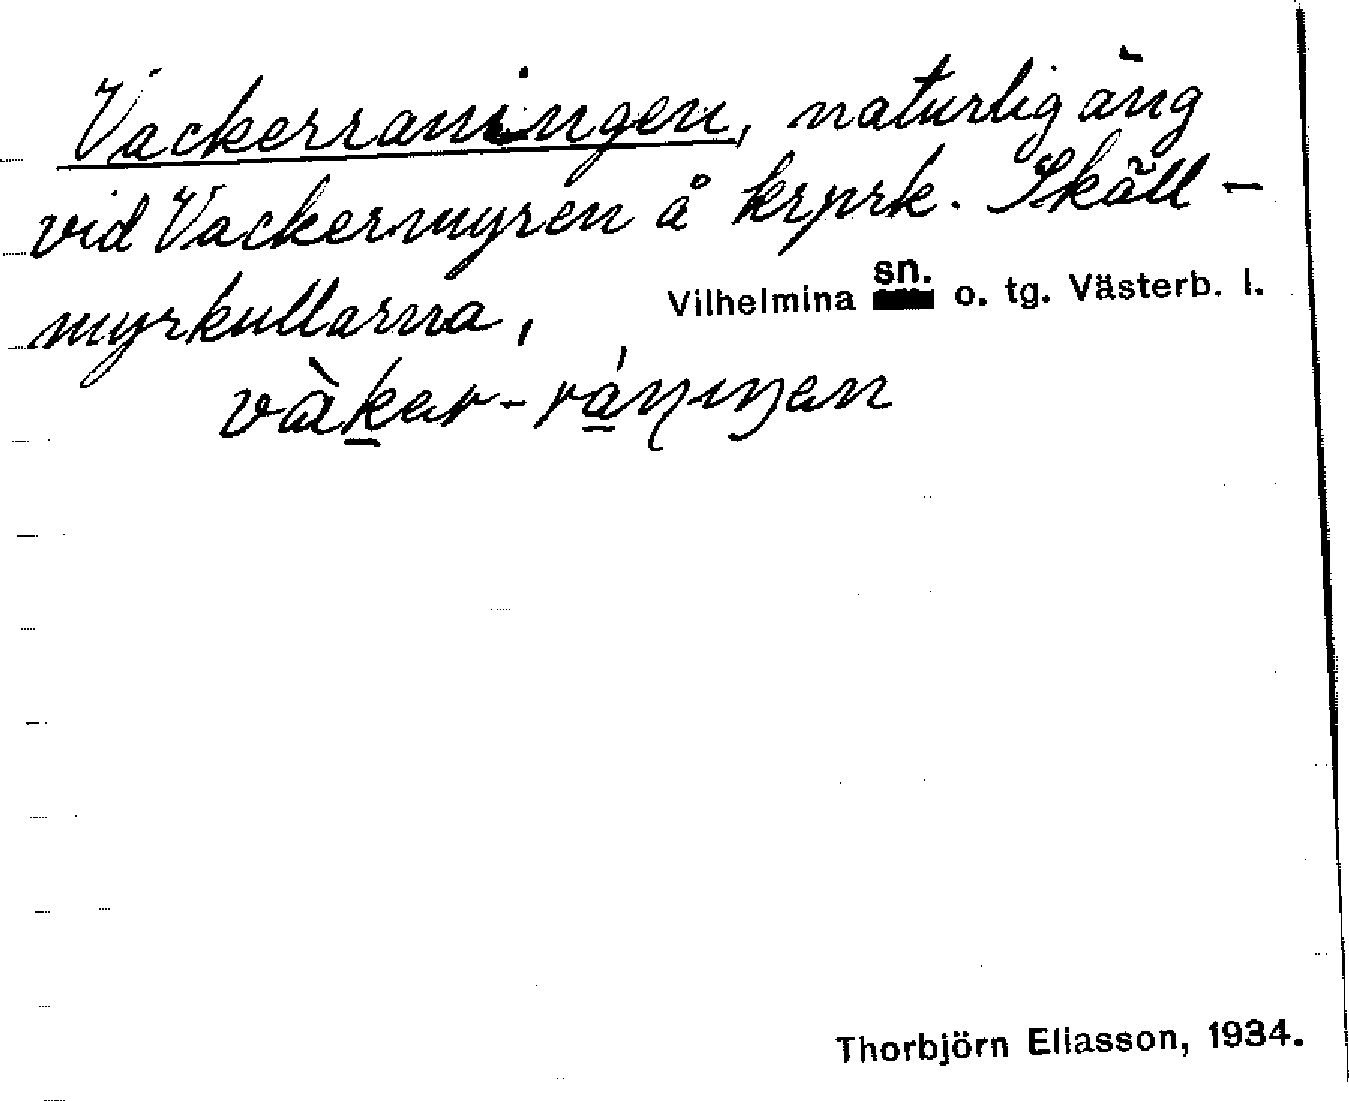 Vackerraningen, naturlig äng
vid Vackermyren å krprk. Skäll-
myrkullarna,
Vilhelmina sn. o. tg. Västerb. l.
Thorbjörn Eliasson, 1934.